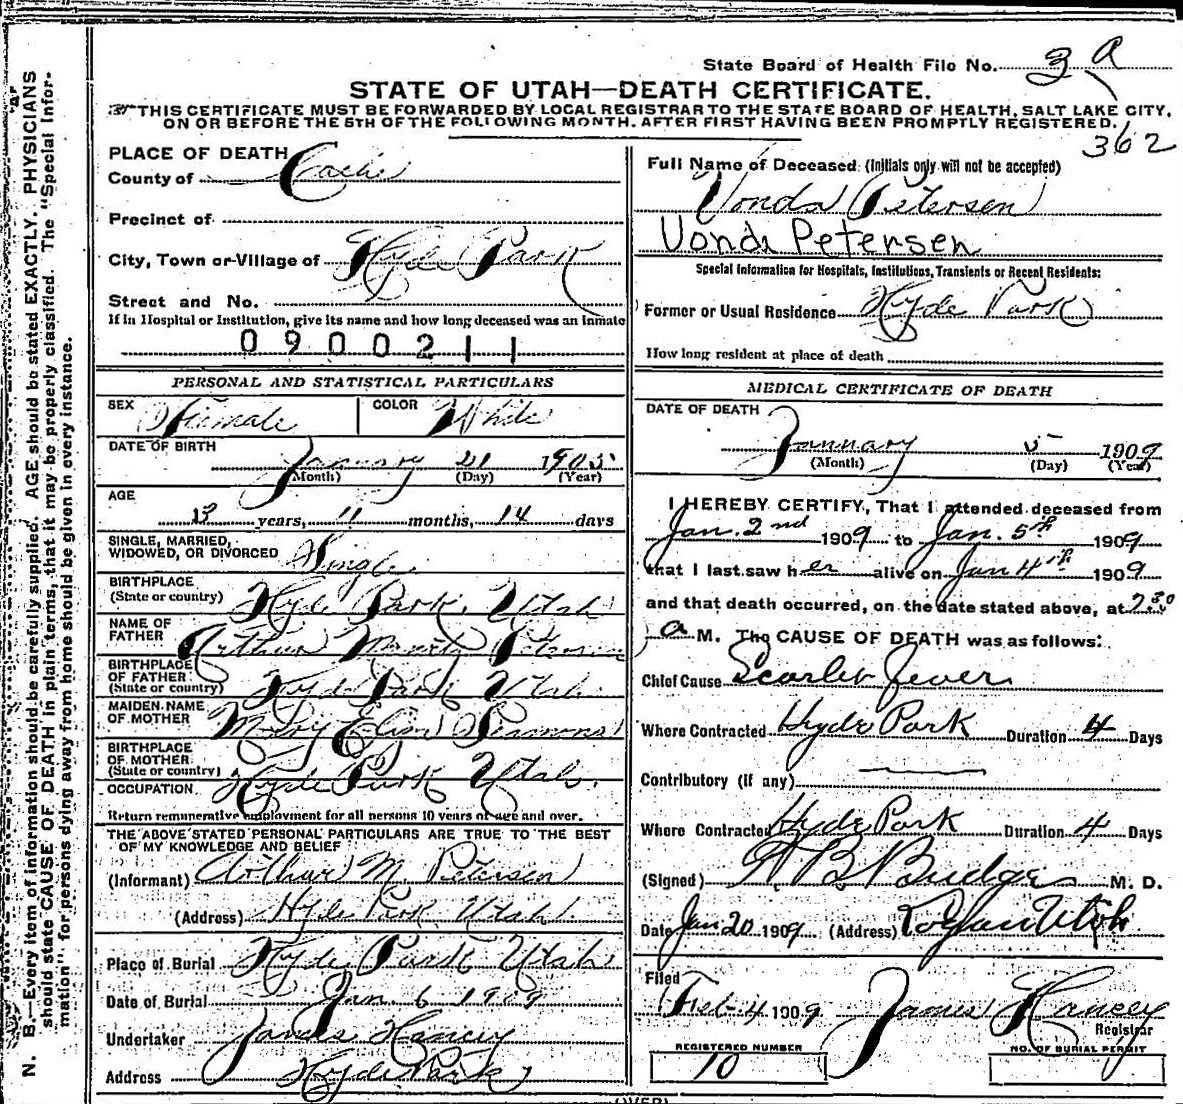 State Board of Health File No. 3 a
STATE OF UTAH—DEATH CERTIFICATE.
THIS CERTIFICATE MUST BE FORWARDED BY LOCAL REGISTRAR TO THE STATE BOARD OF HEALTH, SALT LAKE CITY,
ON OR BEFORE THE 5TH OF THE FOLLOWING MONTH, AFTER FIRST HAVING BEEN PROMPTLY REGISTERED.
362
PLACE OF DEATH
County of Cache
Precinct of
City, Town or Village of Hyde Park
Street and No.
If in Hospital or Institution, give its name and how long deceased was an inmate
0900211
PERSONAL AND STATISTICAL PARTICULARS
SEX Female COLOR White
DATE OF BIRTH January 21 1905
(Month) (Day) (Year)
AGE
13 years, 11 months, 14 days
SINGLE, MARRIED,
WIDOWED, OR DIVORCED Single
BIRTHPLACE
(State or country) Hyde Park, Utah
NAME OF
FATHER Arthur Petersen
BIRTHPLACE
OF FATHER
(State or country) Hyde Park Utah
MAIDEN NAME
OF MOTHER Mary Seamons
BIRTHPLACE
OF MOTHER
(State or country) Hyde Park Utah.
OCCUPATION
Return remunerative employment for all persons 10 years of age and over.
THE ABOVE STATED PERSONAL PARTICULARS ARE TRUE TO THE BEST
OF MY KNOWLEDGE AND BELIEF
(Informant) Arthur M. Petersen
(Address) Hyde Park Utah.
Place of Burial Hyde Park Utah
Date of Burial Jan. 6 1909
Undertaker James Hancey
Address Hyde Park
Full Name of Deceased (Initials only will not be accepted)
Vonda Petersen
Vonda Petersen
Special Information for Hospitals, Institutions, Transients or Recent Residents:
Former or Usual Residence Hyde Park
How long resident at place of death
MEDICAL CERTIFICATE OF DEATH
DATE OF DEATH
January 5 1909
(Month) (Day) (Year)
I HEREBY CERTIFY, That I attended deceased from
Jan. 2nd 1909 to Jan. 5th 1909
that I last saw her alive on Jan 4th 1909
and that death occurred, on the date stated above, at 7.30
a M. The CAUSE OF DEATH was as follows:
Chief Cause Scarlet Fever
Where Contracted Hyde Park Duration 4 Days
Contributory (if any)
Where Contracted Hyde Park Duration 4 Days
(Signed) A B Budge M. D.
Date Jan 20 1909 (Address) Logan Utah
Filed
Feb 4 1909 James Hancey
Registrar
REGISTERED NUMBER
10
NO. OF BURIAL PERMIT
(OVER)
N. B.—Every item of information should be carefully supplied. AGE should be stated EXACTLY. PHYSICIANS
should state CAUSE OF DEATH in plain terms, that it may be properly classified. The "Special Infor-
mation" for persons dying away from home should be given in every instance.